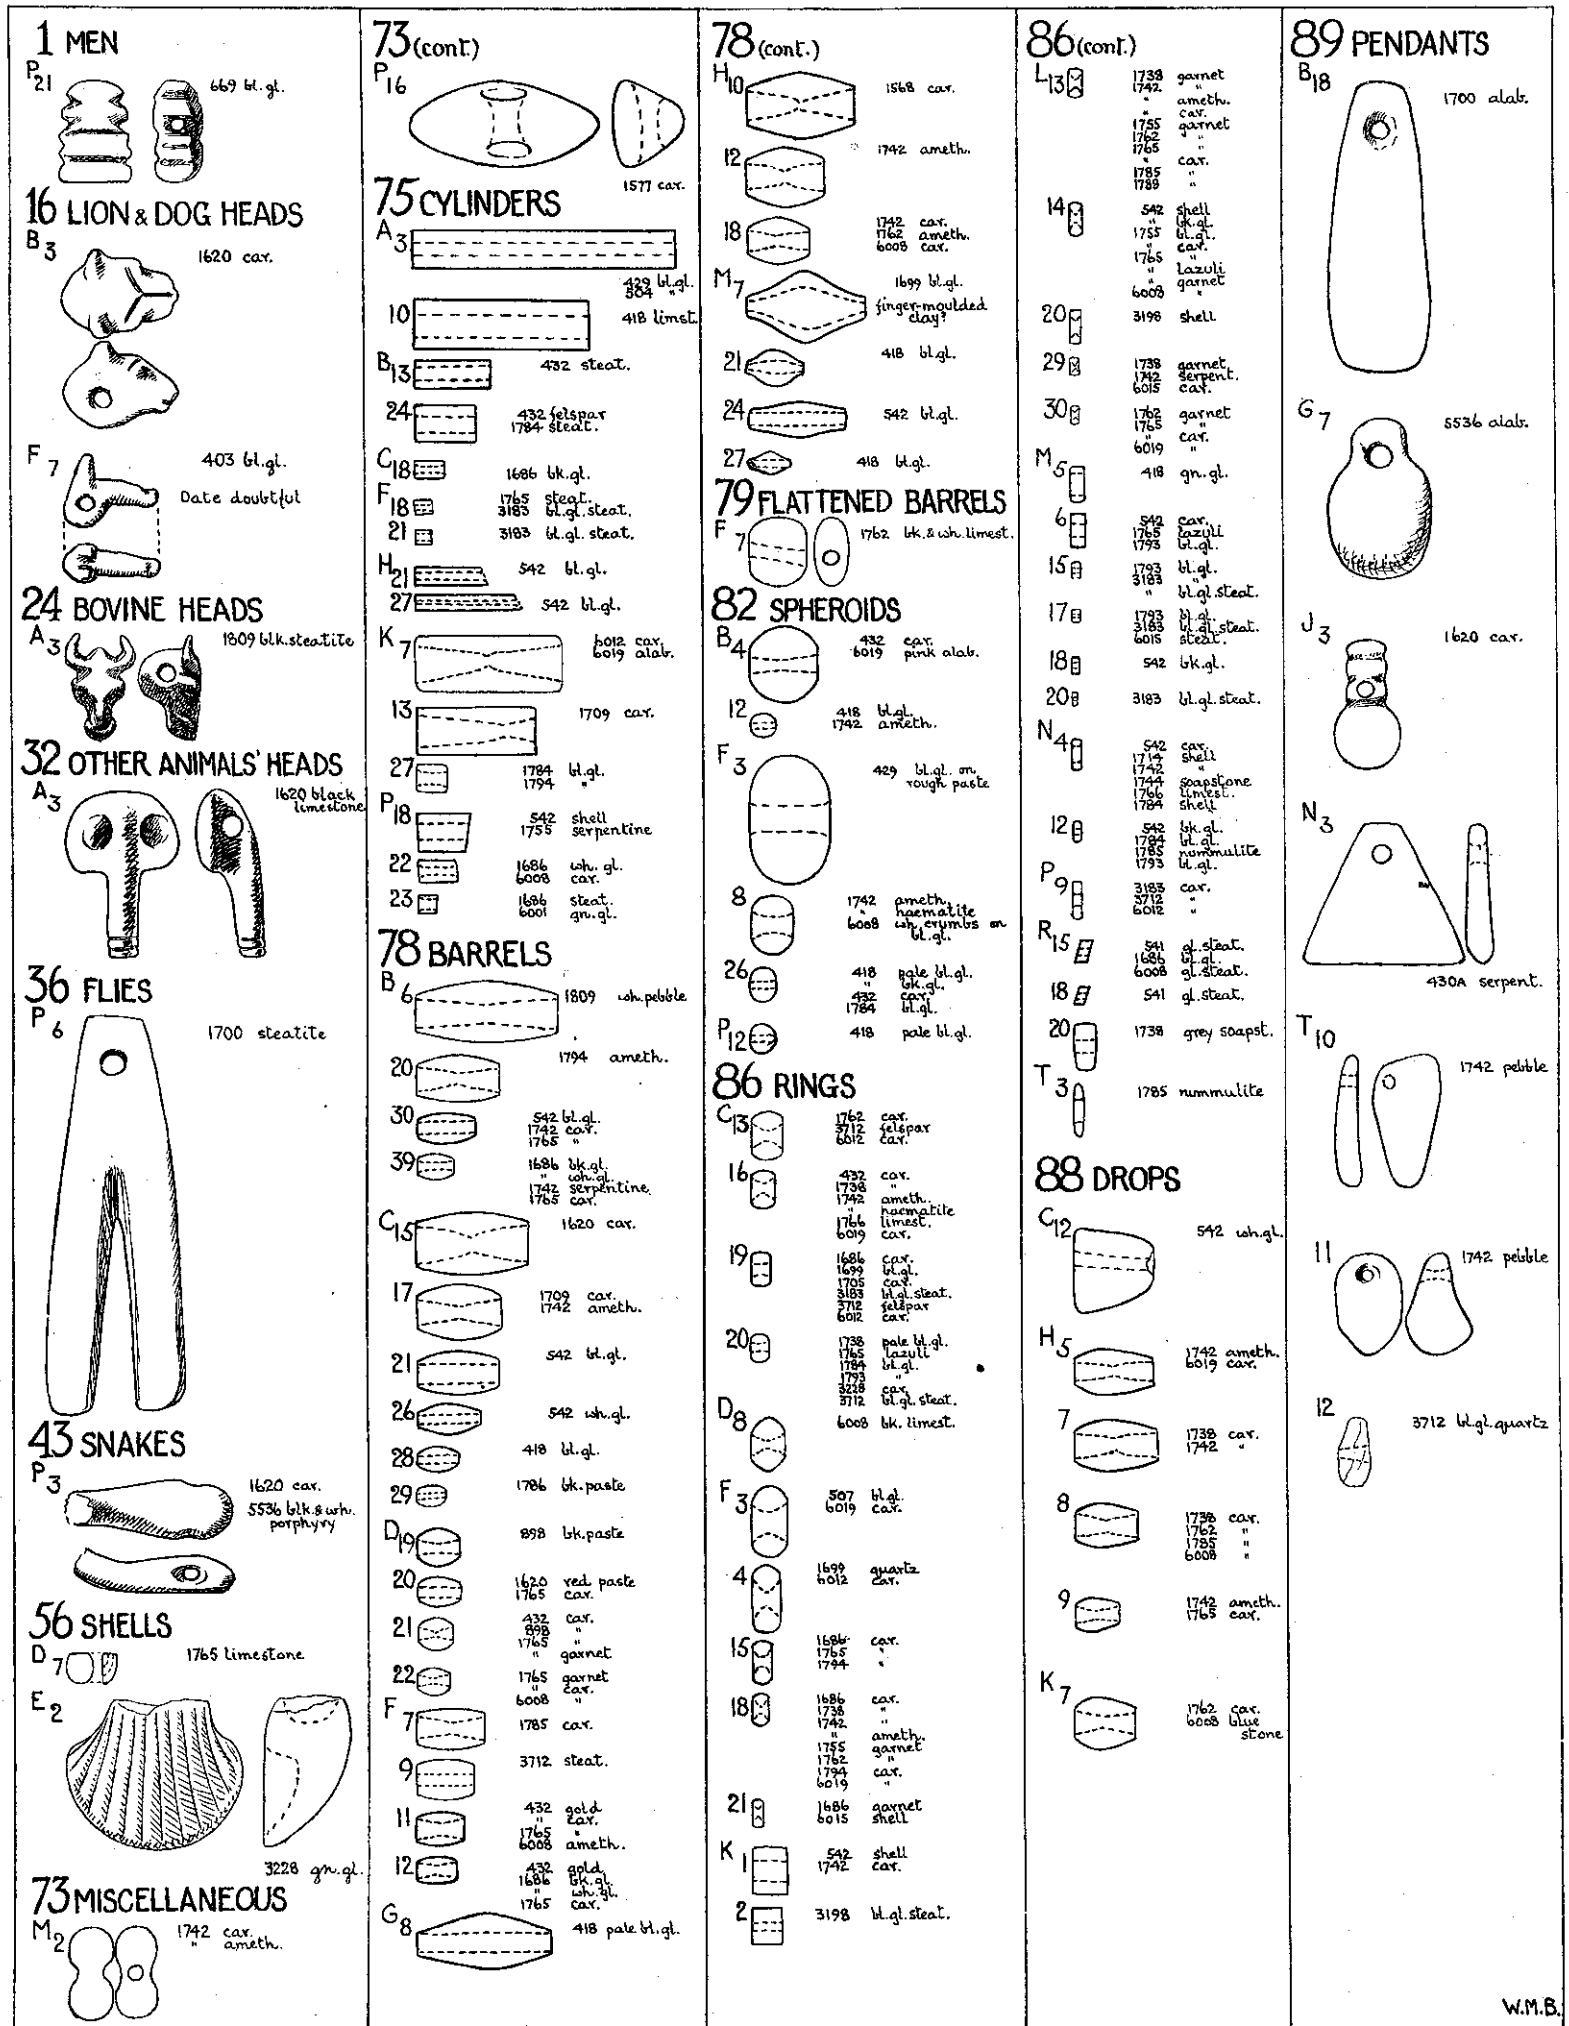 1 MEN
P21 669 bl.gl.
16 LION & DOG HEADS
B3 1620 car.
F7 403 bl.gl.
Date doubtful
24 BOVINE HEADS
A3 1809 blk.steatite
32 OTHER ANIMALS' HEADS
A3 1620 black
limestone
36 FLIES
P6 1700 steatite
43 SNAKES
P3 1620 car.
5536 blk.& wh.
porphyry
56 SHELLS
D7 1765 limestone
E2
3228 gn.gl.
73 MISCELLANEOUS
M2 1742 car.
" ameth.
73 (cont.)
P16
1577 car.
75 CYLINDERS
A3
429 bl.gl.
504 "
10 418 limst.
B13 432 steat.
24 432 felspar
1784 steat.
C18 1686 bk.gl.
F18 1765 steat.
3183 bl.gl.steat.
21 3183 bl.gl.steat.
H21 542 bl.gl.
27 542 bl.gl.
K7 6012 car.
6019 alab.
13 1709 car.
27 1784 bl.gl.
1794 "
P18 542 shell
1755 serpentine
22 1686 wh.gl.
6008 car.
23 1686 steat.
6001 gn.gl.
78 BARRELS
B6 1809 wh.pebble
20 1794 ameth.
30 542 bl.gl.
1742 car.
1765 "
39 1686 bk.gl.
" wh.gl.
1742 serpentine
1765 car.
C15 1620 car.
17 1709 car.
1742 ameth.
21 542 bl.gl.
26 542 wh.gl.
28 418 bl.gl.
29 1786 bk.paste
D19 898 bk.paste
20 1620 red paste
1765 car.
21 432 car.
898 "
1765 "
" garnet
22 1765 garnet
" car.
6008 "
F7 1785 car.
9 3712 steat.
11 432 gold
" car.
1765 "
6008 ameth.
12 432 gold
1686 bk.gl.
" wh.gl.
1765 car.
G8 418 pale bl.gl.
78 (cont.)
H10 1568 car.
12 1742 ameth.
18 1742 car.
1762 ameth.
6008 car.
M7 1699 bl.gl.
finger-moulded
clay?
21 418 bl.gl.
24 542 bl.gl.
27 418 bl.gl.
79 FLATTENED BARRELS
F7 1762 bk.& wh.limest.
82 SPHEROIDS
B4 432 car.
6019 pink alab.
12 418 bl.gl.
1742 ameth.
F3 429 bl.gl. on
rough paste
8 1742 ameth.
" haematite
6008 wh.crumbs on
bl.gl.
26 418 pale bl.gl.
" bk.gl.
432 car.
1784 bl.gl.
P12 418 pale bl.gl.
86 RINGS
C13 1762 car.
3712 felspar
6012 car.
16 432 car.
1738 "
1742 ameth.
" haematite
1766 limest.
6019 car.
19 1686 car.
1699 bl.gl.
1705 car.
3183 bl.gl.steat.
3712 felspar
6012 car.
20 1738 pale bl.gl.
1765 lazuli
1784 bl.gl.
1793 "
3228 car.
3712 bl.gl.steat.
D8 6008 bk. limest.
F3 507 bl.gl.
6019 car.
4 1699 quartz
6012 car.
15 1686 car.
1765 "
1794 "
18 1686 car.
1738 "
1742 "
" ameth.
1755 garnet
1762 "
1794 car.
6019 "
21 1686 garnet
6015 shell
K1 542 shell
1742 car.
2 3198 bl.gl.steat.
86 (cont.)
L13 1738 garnet
1742 "
" ameth.
" car.
1755 garnet
1762 "
1765 "
" car.
1785 "
1789 "
14 542 shell
" bk.gl.
1755 bl.gl.
" car.
1765 "
" lazuli
" garnet
6008 "
20 3198 shell
29 1738 garnet
1742 serpent.
6015 car.
30 1762 garnet
1765 "
" car.
6019 "
M5 418 gn.gl.
6 542 car.
1765 lazuli
1793 bl.gl.
15 1793 bl.gl.
3183 "
" bl.gl.steat.
17 1793 bl.gl.
3183 bl.gl.steat.
6015 steat.
18 542 bk.gl.
20 3183 bl.gl.steat.
N4 542 car.
1714 shell
1742 "
1744 soapstone
1766 limest.
1784 shell
12 542 bk.gl.
1784 bl.gl.
1785 nummulite
1793 bl.gl.
P9 3183 car.
3712 "
6012 "
R15 541 gl.steat.
1686 bl.gl.
6008 gl.steat.
18 541 gl.steat.
20 1738 grey soapst.
T3 1785 nummulite
88 DROPS
C12 542 wh.gl.
H5 1742 ameth.
6019 car.
7 1738 car.
1742 "
8 1738 car.
1762 "
1785 "
6008 "
9 1742 ameth.
1765 car.
K7 1762 car.
6008 blue
stone
89 PENDANTS
B18 1700 alab.
G7 5536 alab.
J3 1620 car.
N3
430A serpent.
T10 1742 pebble
11 1742 pebble
12 3712 bl.gl.quartz
W.M.B.